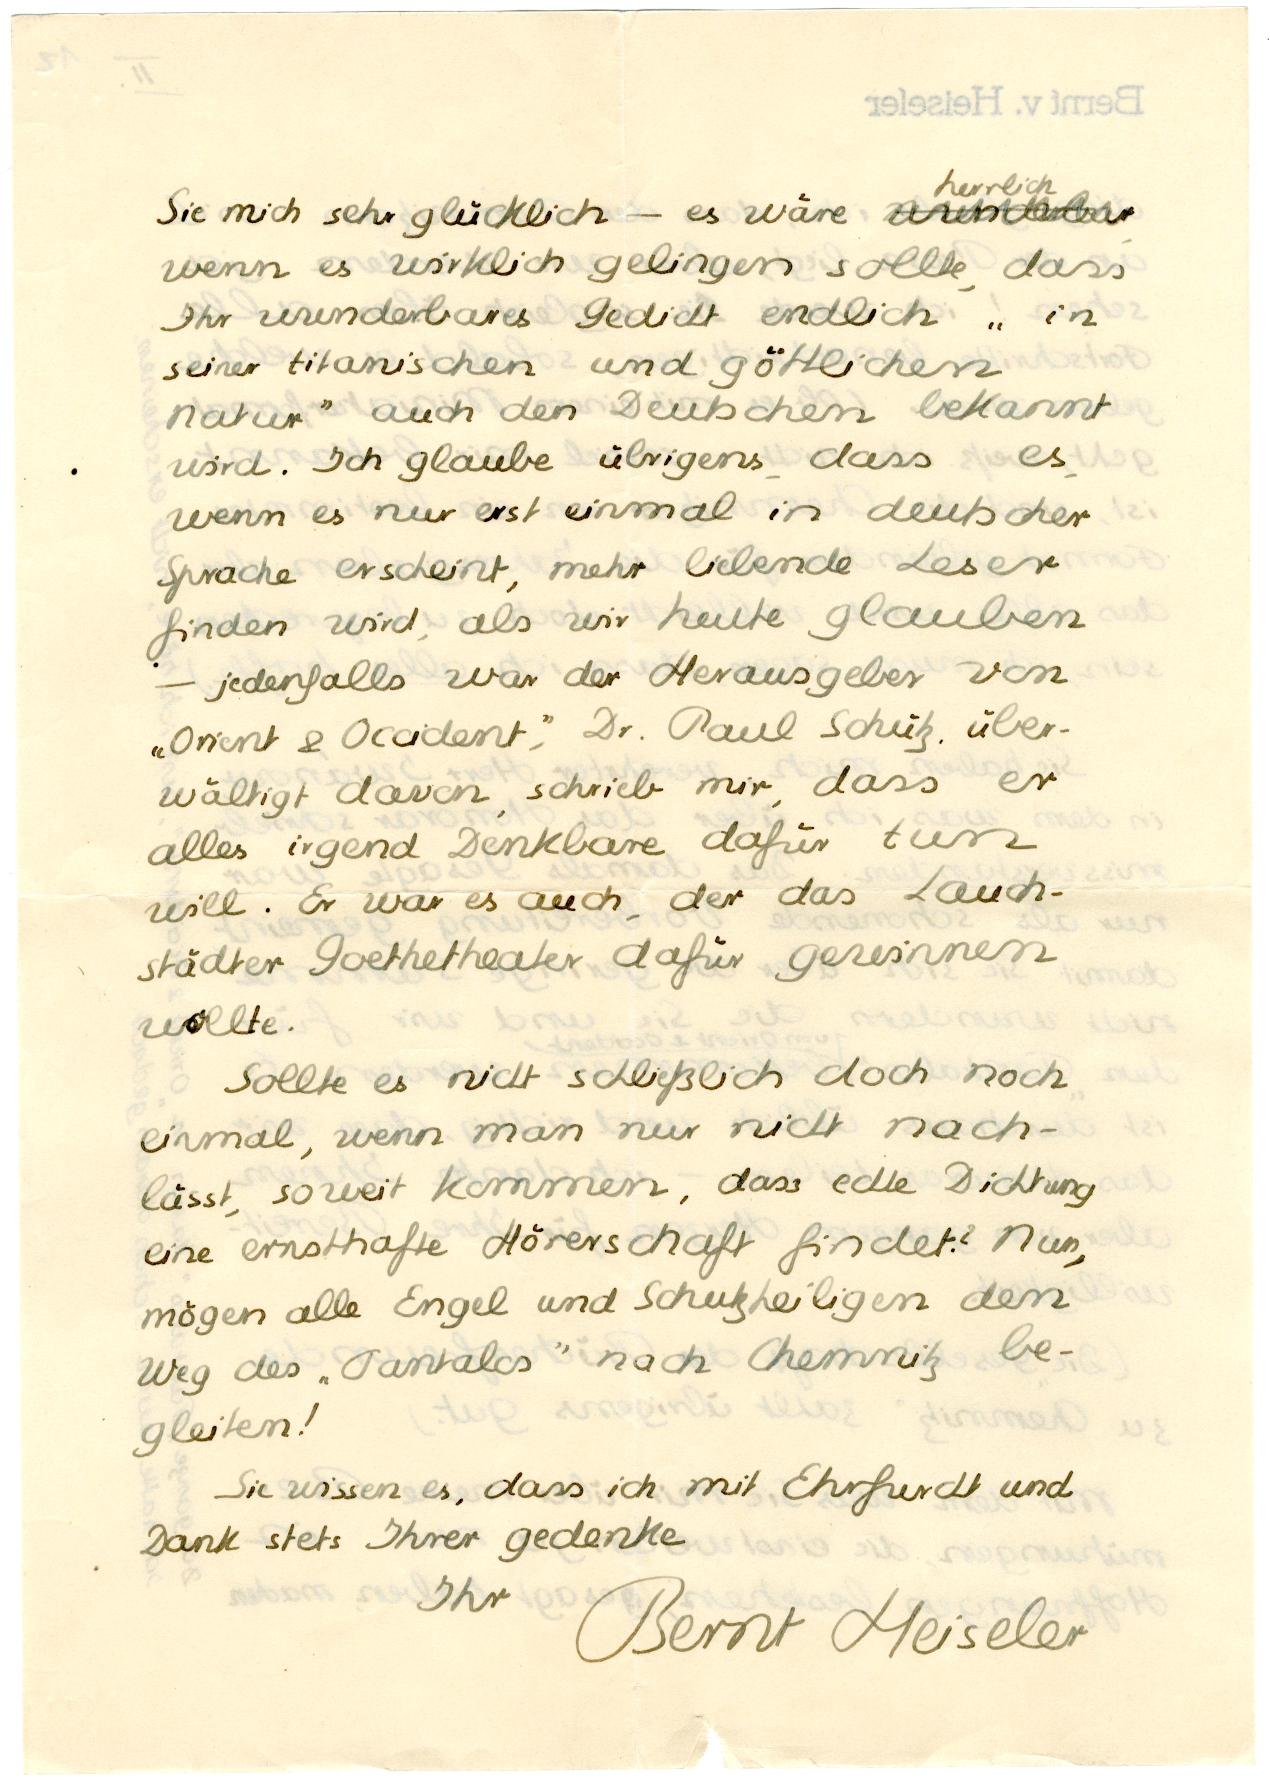 Sie mich sehr glücklich – es wäre herrlich wunderbar,
wenn es wirklich gelingen sollte, dass
Ihr wunderbares Gedicht endlich „in
seiner titanischen und göttlichen
Natur” auch den Deutschen bekannt
wird. Ich glaube übrigens, dass es,
wenn es nur erst einmal in deutscher
Sprache erscheint, mehr liebende Leser
finden wird, als wir heute glauben
– jedenfalls war der Herausgeber von
„Orient & Occident”, Dr. Paul Schütz, über-
wältigt davon, schrieb mir, dass er
alles irgend Denkbare dafür tun
will. Er war es auch, der das Lauch-
städter Goethetheater dafür gewinnen
wollte.
Sollte es nicht schließlich doch noch
einmal, wenn man nur nicht nach-
lässt, soweit kommen, dass edle Dichtung
eine ernsthafte Hörerschaft findet? Nun,
mögen alle Engel und Schutzheiligen den
Weg des „Tantalos” nach Chemnitz be-
gleiten!
Sie wissen es, dass ich mit Ehrfurcht und
Dank stets Ihrer gedenke
Ihr
Bernt Heiseler